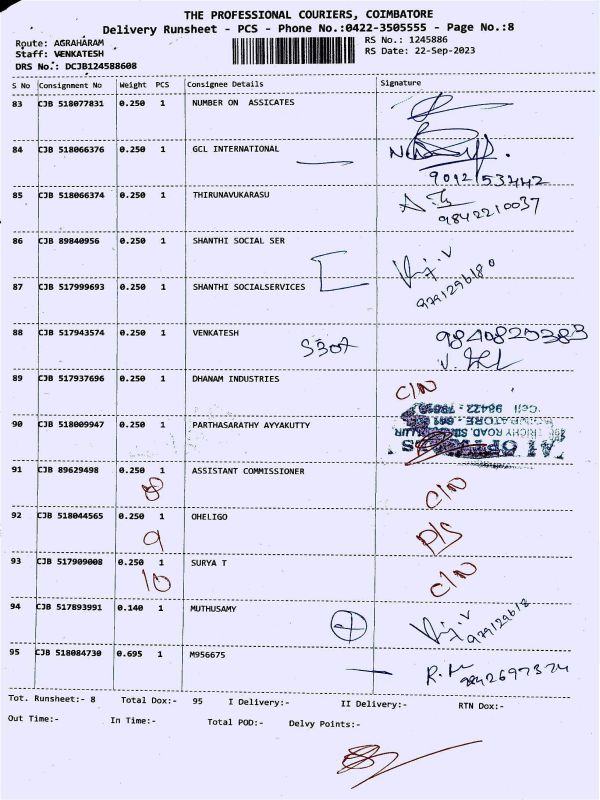 THE PROFESSIONAL COURIERS, COIMBATORE
Delivery Runsheet - PCS - Phone No.:0422-3505555 - Page No.:8
Route: AGRAHARAM RS No.: 1245886
Staff: VENKATESH RS Date: 22-Sep-2023
DRS No.: DCJB124588608
S No Consignment No Weight PCS Consignee Details Signature
83 CJB 518077831 0.250 1 NUMBER ON ASSICATES
84 CJB 518066376 0.250 1 GCL INTERNATIONAL
85 CJB 518066374 0.250 1 THIRUNAVUKARASU
9842210037
86 CJB 89840956 0.250 1 SHANTHI SOCIAL SER
87 CJB 517999693 0.250 1 SHANTHI SOCIALSERVICES
9791296180
88 CJB 517943574 0.250 1 VENKATESH
89 CJB 517937696 0.250 1 DHANAM INDUSTRIES C/N
90 CJB 518009947 0.250 1 PARTHASARATHY AYYAKUTTY
91 CJB 89629498 0.250 1 ASSISTANT COMMISSIONER
8 C/N
92 CJB 518044565 0.250 1 OHELIGO
9 D/S
93 CJB 517909008 0.250 1 SURYA T
10 C/N
94 CJB 517893991 0.140 1 MUTHUSAMY
95 CJB 518084730 0.695 1 M956675
Tot. Runsheet:- 8 Total Dox:- 95 I Delivery:- II Delivery:- RTN Dox:-
Out Time:- In Time:- Total POD:- Delvy Points:-